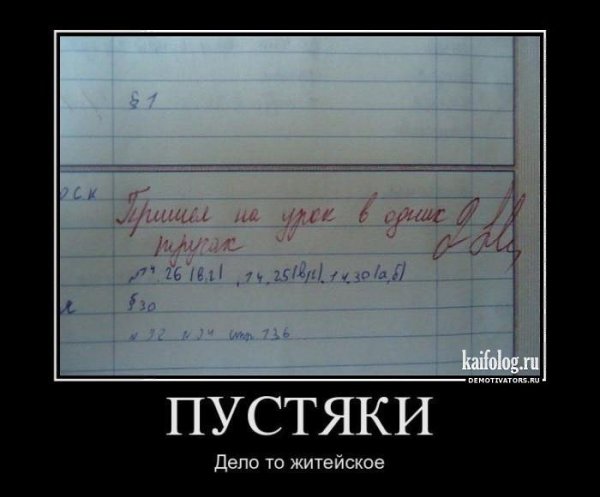 § 1
оск
Пришел на урок в одних
трусах
№14.26(в,г), 14.25(в,г), 14.30(а,б)
я
§30
№ 32 № 34 стр 136
kaifolog.ru
DEMOTIVATORS.RU
ПУСТЯКИ
Дело то житейское